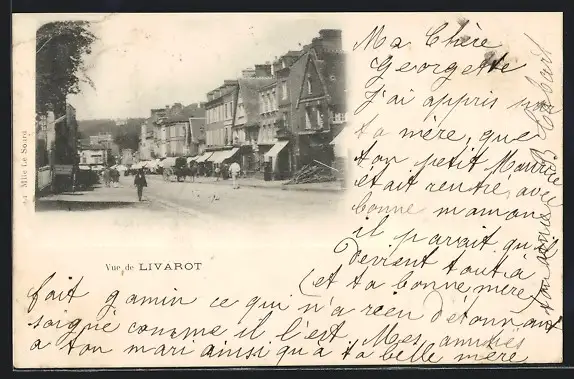 Ma Chère
Georgette
J'ai appris par
ta mère, que
ton petit Maurice
était rentré, avec
bonne maman
il parait qu'il
devient tout à
(et ta bonne mère)
fait gamin ce qui n'a rien d'étonnant
soigné comme il l'est. Mes amitiés
à ton mari ainsi qu'à ta belle mère
ton amie
Vue de LIVAROT
Mlle Le Sourd